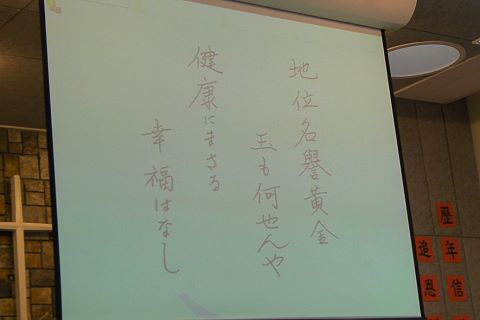 地位名譽黄金
玉も何せんや
健康にまさる
幸福はなし
歴年信
追恩